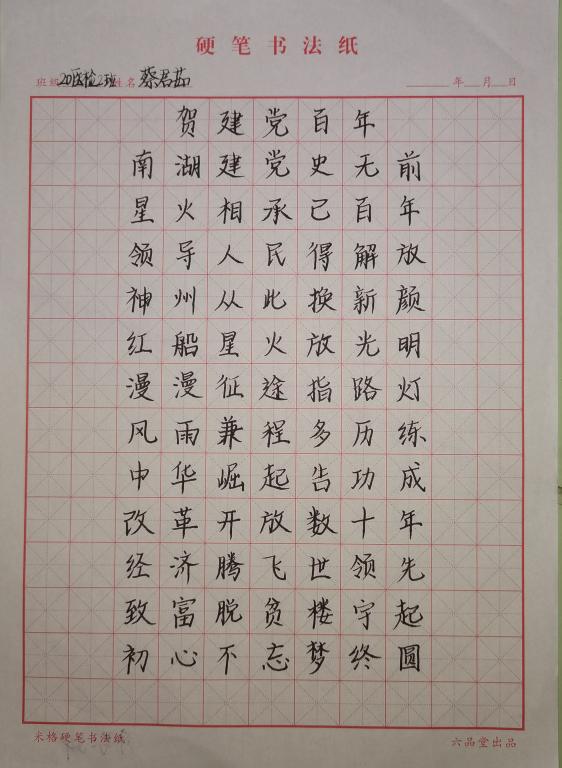 硬笔书法纸
班级 20医检2班 姓名 蔡君茹 年 月 日
贺建党百年
南湖建党史无前
星火相承已百年
领导人民得解放
神州从此换新颜
红船星火放光明
漫漫征途指路灯
风雨兼程多历练
中华崛起告功成
改革开放数十年
经济腾飞世领先
致富脱贫楼宇起
初心不忘梦终圆
米格硬笔书法纸 六品堂出品